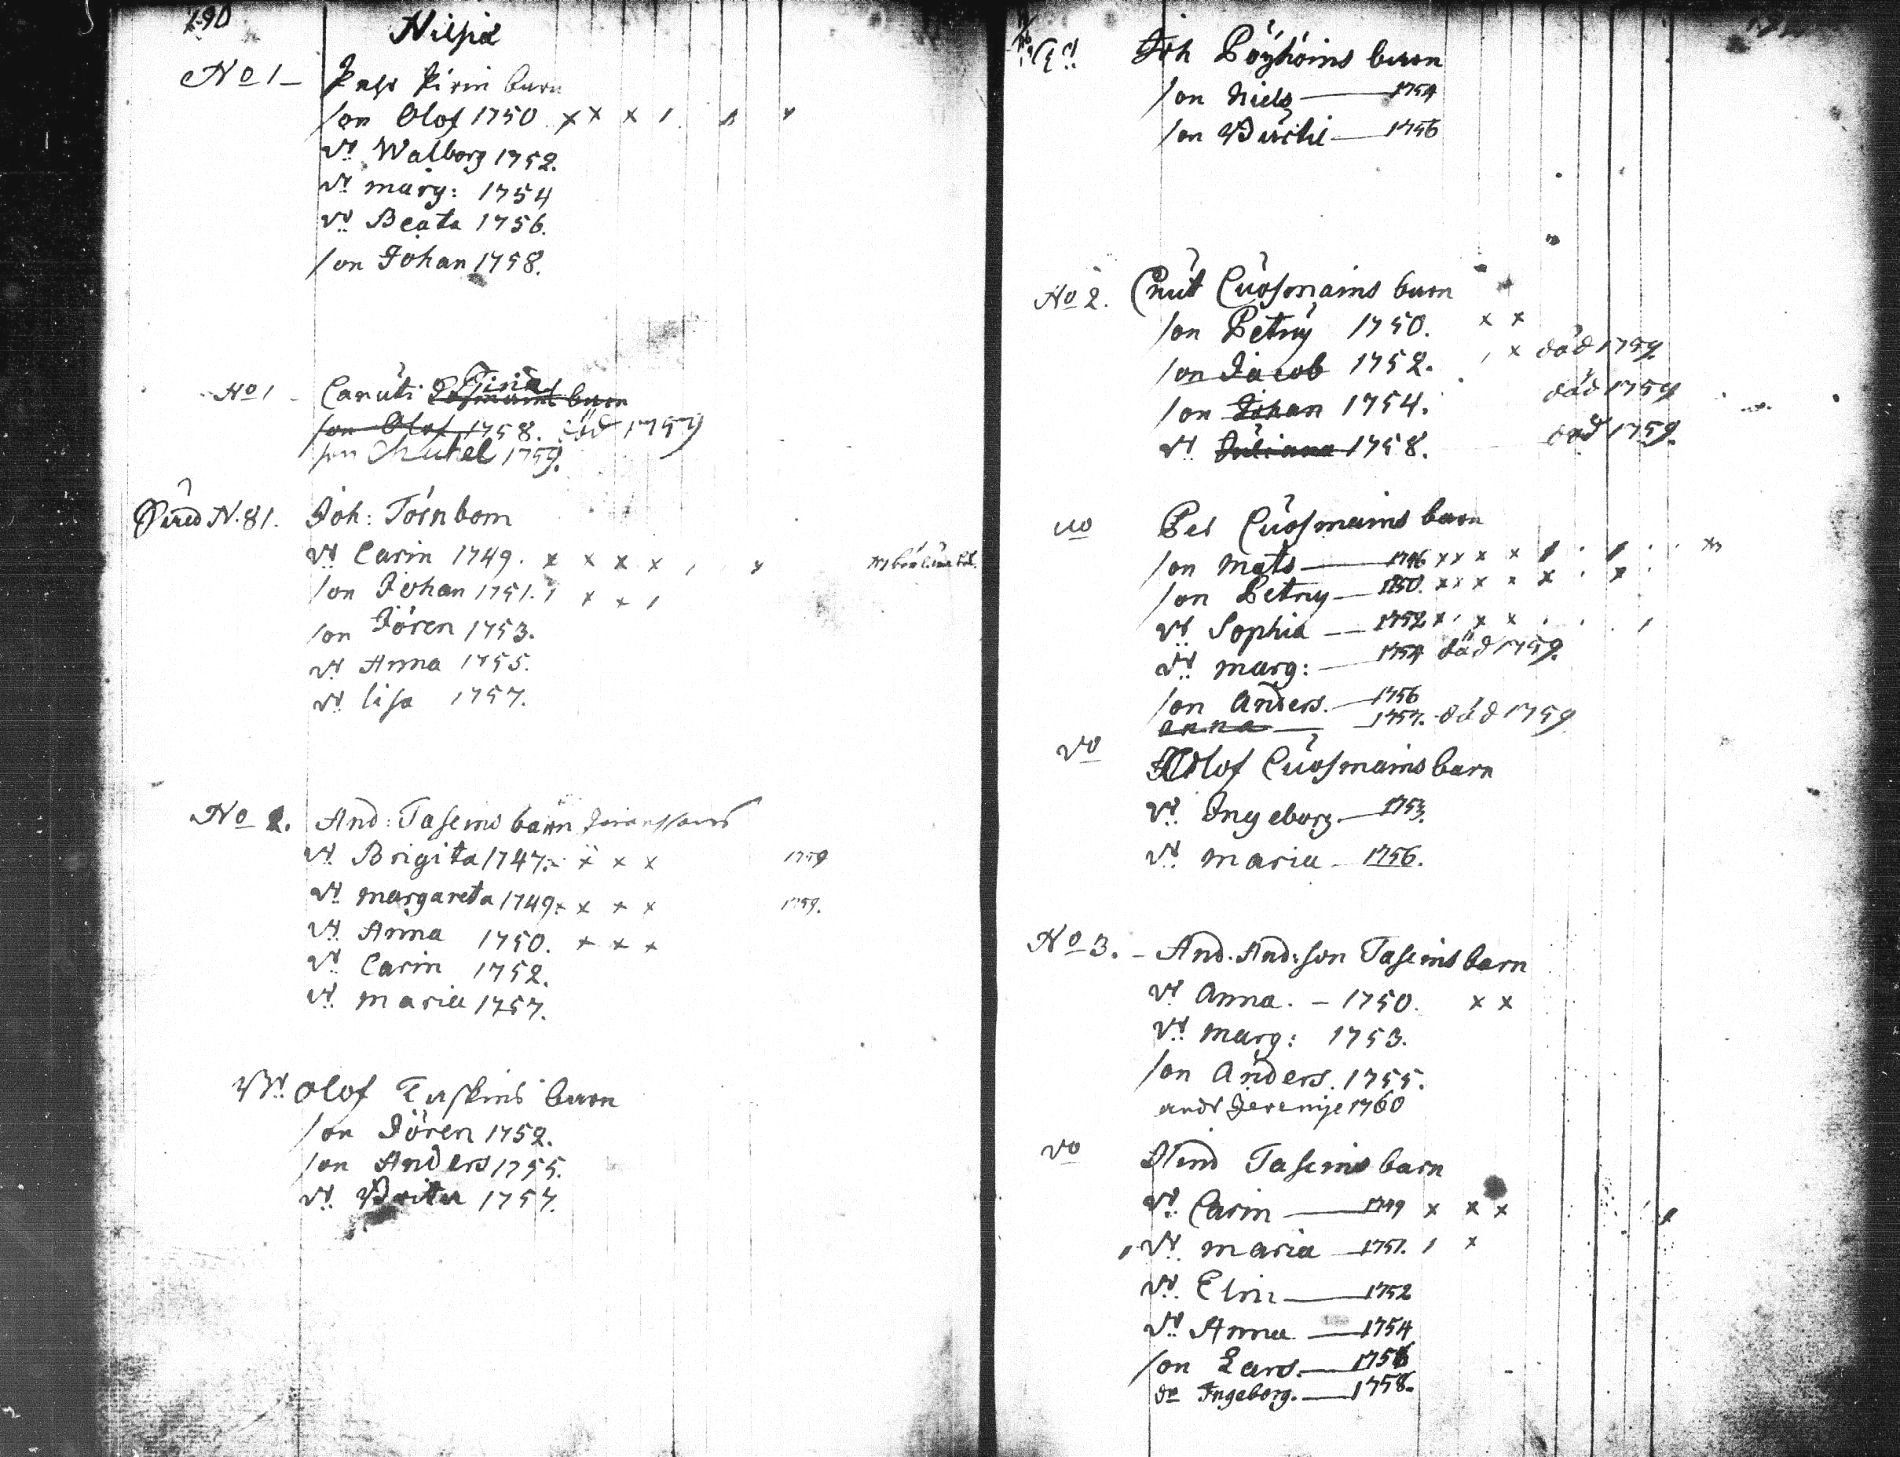 290
Nilsiä
No 1 - Pehr Pirin barn
son Olof 1750 x x x
Dr Walborg 1752.
Dr marg: 1754
Dr Beata 1756.
son Johan 1758.
No 1 - Canuti barn
son Olof 1758. död 1759
son Michel 1759.
N. 81. Joh: Törnbom
Dr Carin 1749. x x x x
son Johan 1751. x x
son Jören 1753.
Dr Anna 1755.
Dr lisa 1757.
No 2. And: Taskins barn
Dr Brigita 1747. x x x 1759
Dr margareta 1749. x x x 1759.
Dr Anna 1750. x x x
Dr Carin 1752.
Dr maria 1757.
Olof Taskins barn
son Jören 1752.
son Anders 1755.
Dr Brita 1757.
Joh Pöyhöins barn
son Niels 1754
son Bertil 1756
No 2. Cnut Cuosmains barn
son Petruj 1750. x x
son Jacob 1752. x död 1759
son Johan 1754. död 1759
Dr Juliana 1758. död 1759.
Per Cuosmains barn
son Mats 1746 x x x x
son Petruj 1750. x x x x x x
Dr Sophia 1752 x x x
Dr marg: 1754 död 1759.
son Anders. 1756
anna 1757. död 1759
Olof Cuosmains barn
Dr Ingeborg 1753.
Dr maria 1756.
No 3. - And. And:son Taskins barn
Dr Anna. - 1750. x x
Dr Marg: 1753.
son Anders. 1755.
1760
Hind Taskins barn
Dr Carin 1749 x x x
Dr maria 1751. x
Dr Elin 1752
Dr Anna 1754
son Lars. 1756
do Ingeborg. 1758.